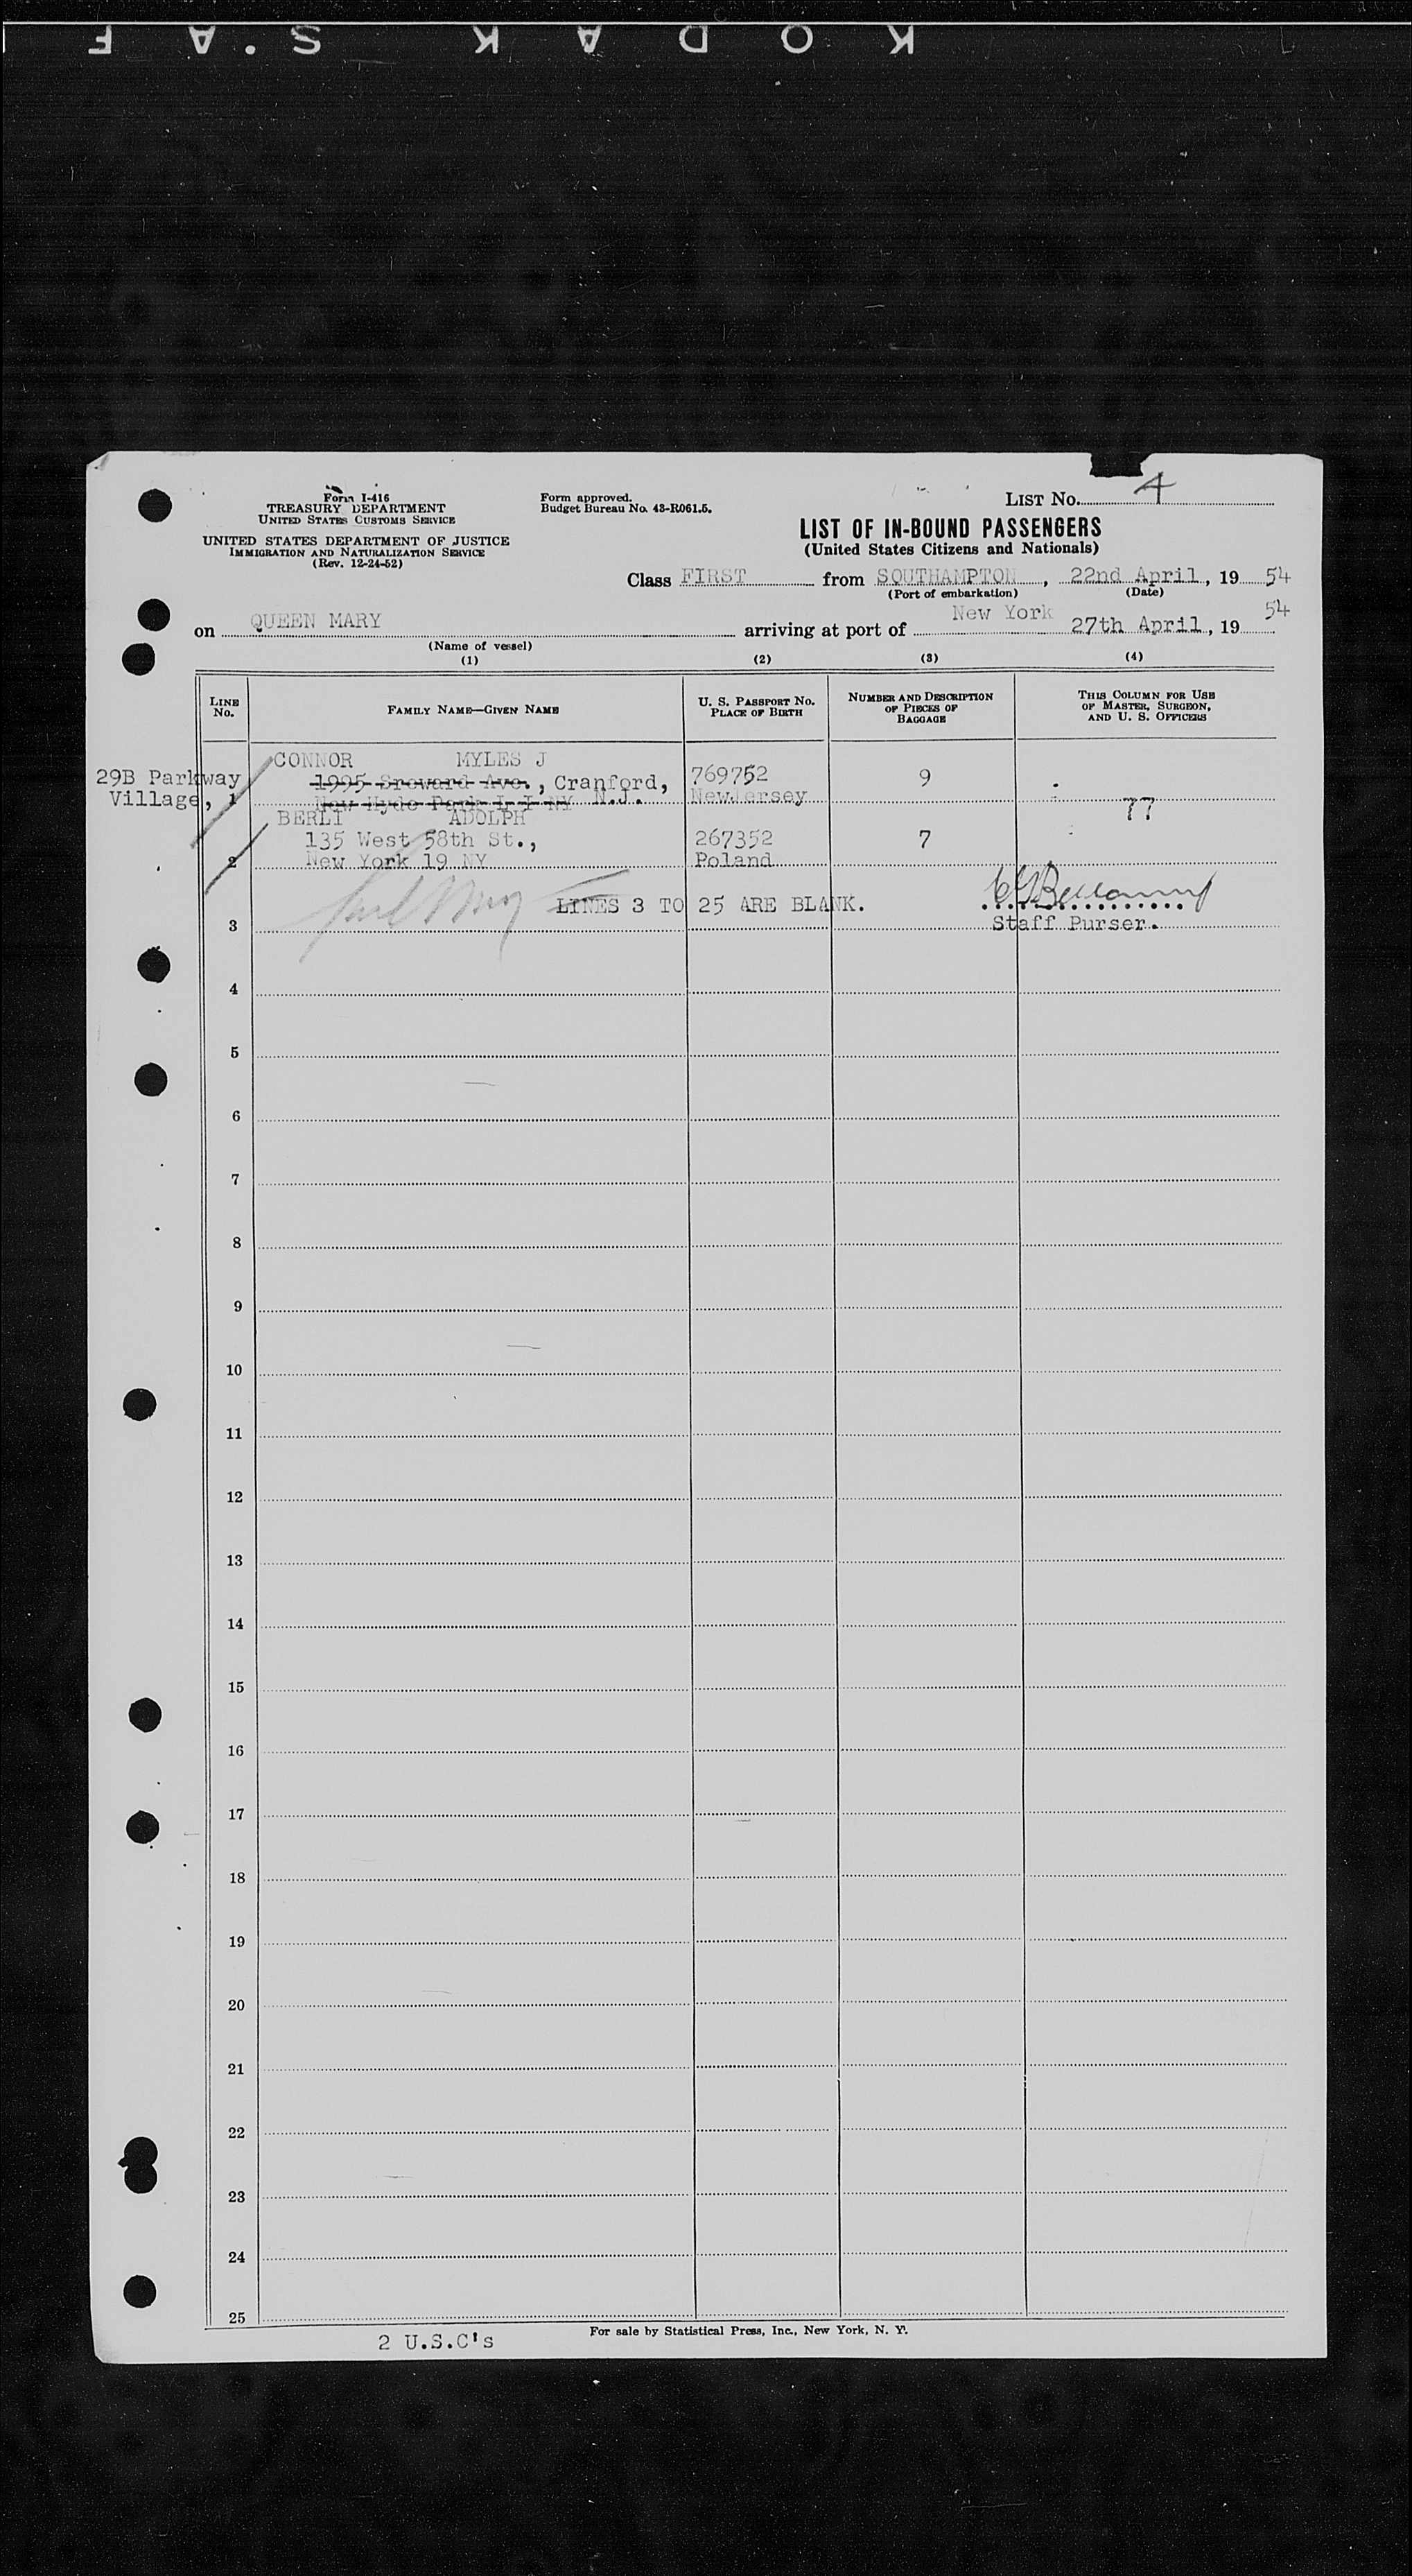 KODAK S.A F
Form I-416
TREASURY DEPARTMENT
UNITED STATES CUSTOMS SERVICE
UNITED STATES DEPARTMENT OF JUSTICE
IMMIGRATION AND NATURALIZATION SERVICE
(Rev. 12-24-52)
Form approved.
Budget Bureau No. 43-R061.5.
LIST NO. 4
LIST OF IN-BOUND PASSENGERS
(United States Citizens and Nationals)
Class FIRST from SOUTHAMPTON, 22nd April, 19 54
(Port of embarkation) (Date)
on QUEEN MARY arriving at port of New York 27th April, 19 54
(Name of vessel)
(1) (2) (3) (4)
LINE No. FAMILY NAME—GIVEN NAME U. S. PASSPORT NO. PLACE OF BIRTH NUMBER AND DESCRIPTION OF PIECES OF BAGGAGE THIS COLUMN FOR USE OF MASTER, SURGEON, AND U. S. OFFICERS
CONNOR MYLES J
29B Parkway 1995 Ave., Cranford, 769752 9
Village, 1 New Hyde Park L I NY N.J. NewJersey 77
BERLI ADOLPH
135 West 58th St., 267352 7
2 New York 19 NY Poland
LINES 3 TO 25 ARE BLANK.
3 Staff Purser.
4
5
6
7
8
9
10
11
12
13
14
15
16
17
18
19
20
21
22
23
24
25
2 U.S.C's
For sale by Statistical Press, Inc., New York, N. Y.